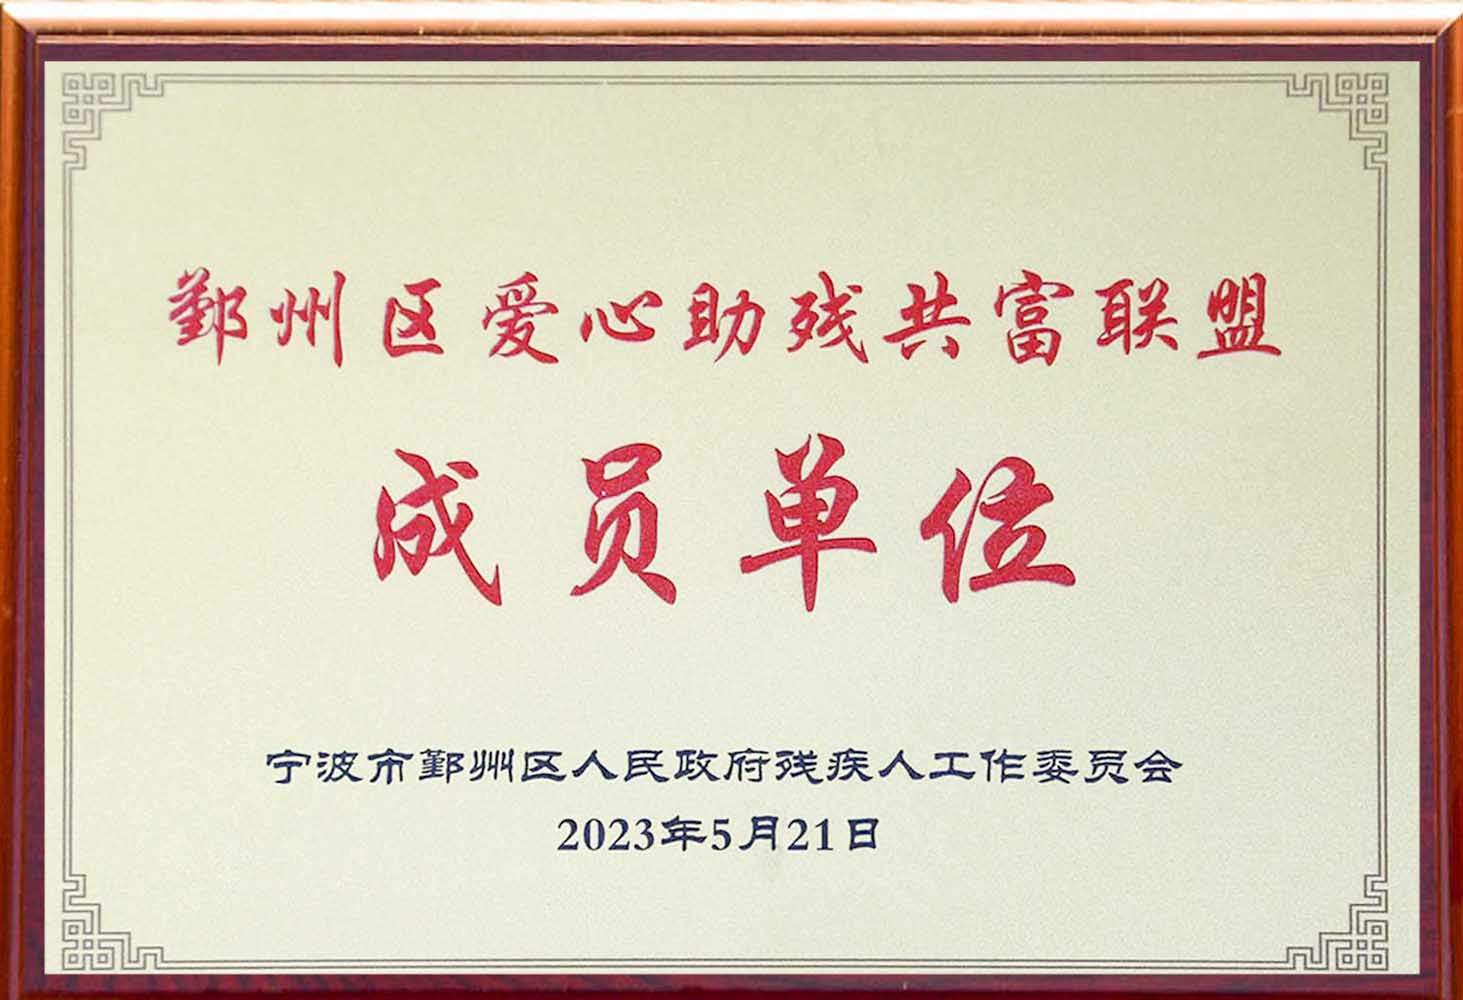 鄞州区爱心助残共富联盟
成员单位
宁波市鄞州区人民政府残疾人工作委员会
2023年5月21日